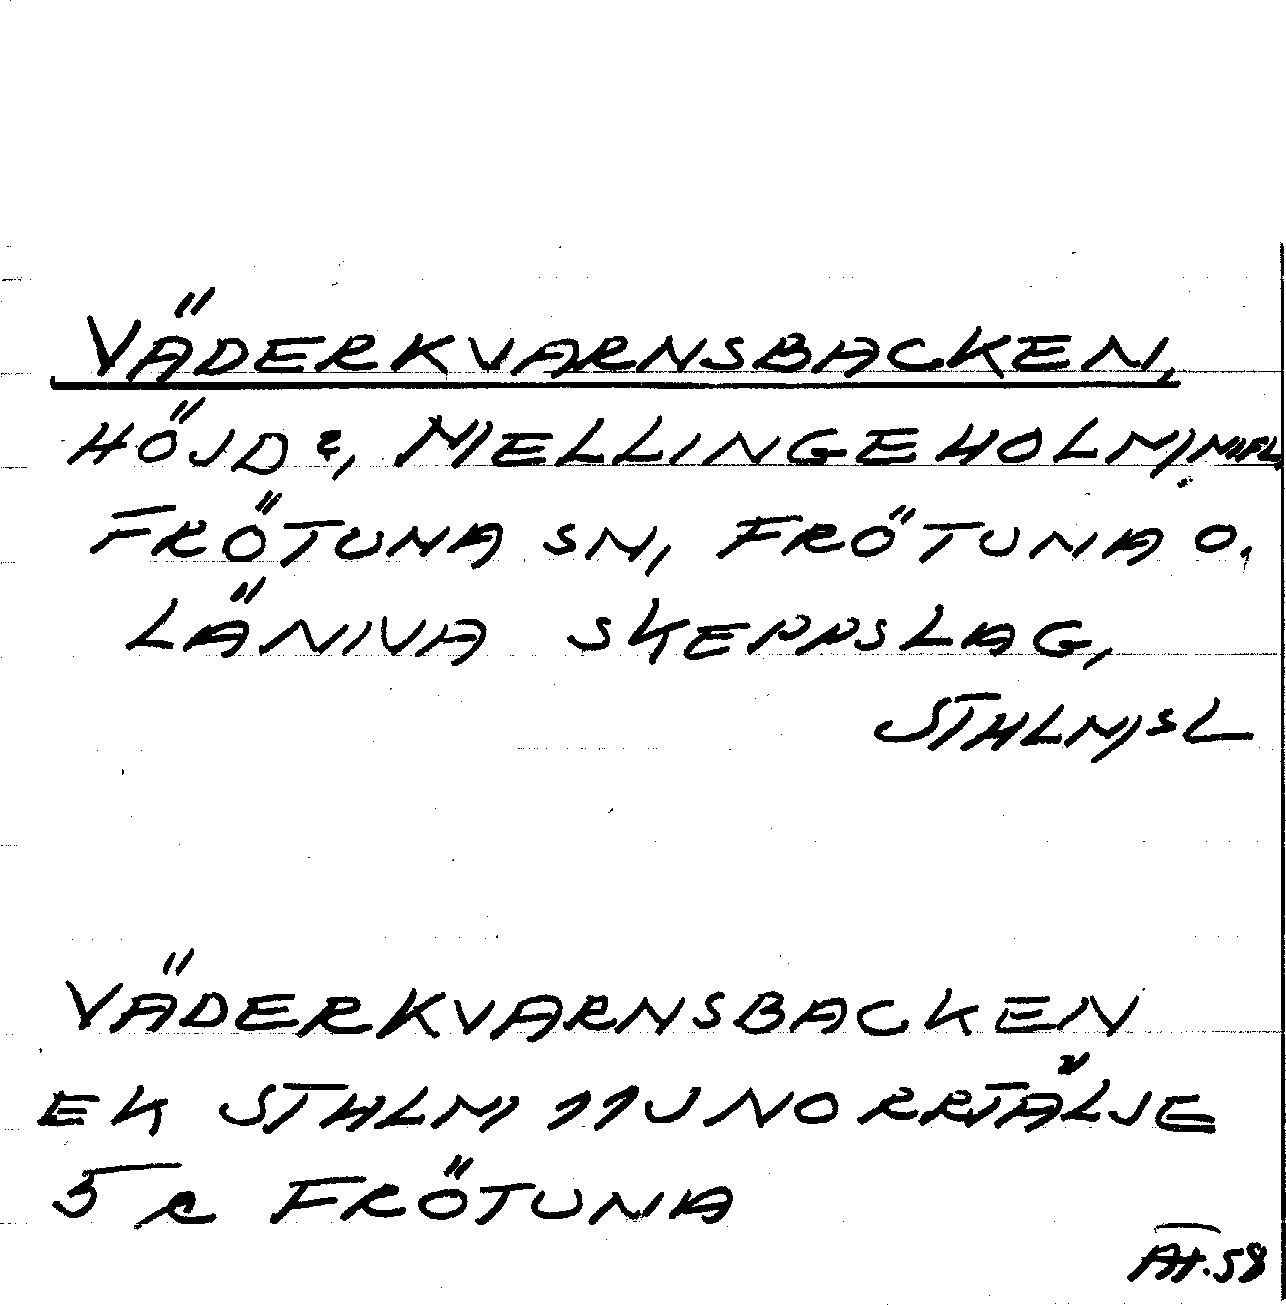 VÄDERKVARNSBACKEN,
HÖJD?, MELLINGEHOLM,
FRÖTUNA SN, FRÖTUNA O.
LÄNNA SKEPPSLAG,
STHLMSL
VÄDERKVARNSBACKEN
EK STHLM 11J NORRTÄLJE
5 e FRÖTUNA
AH.58